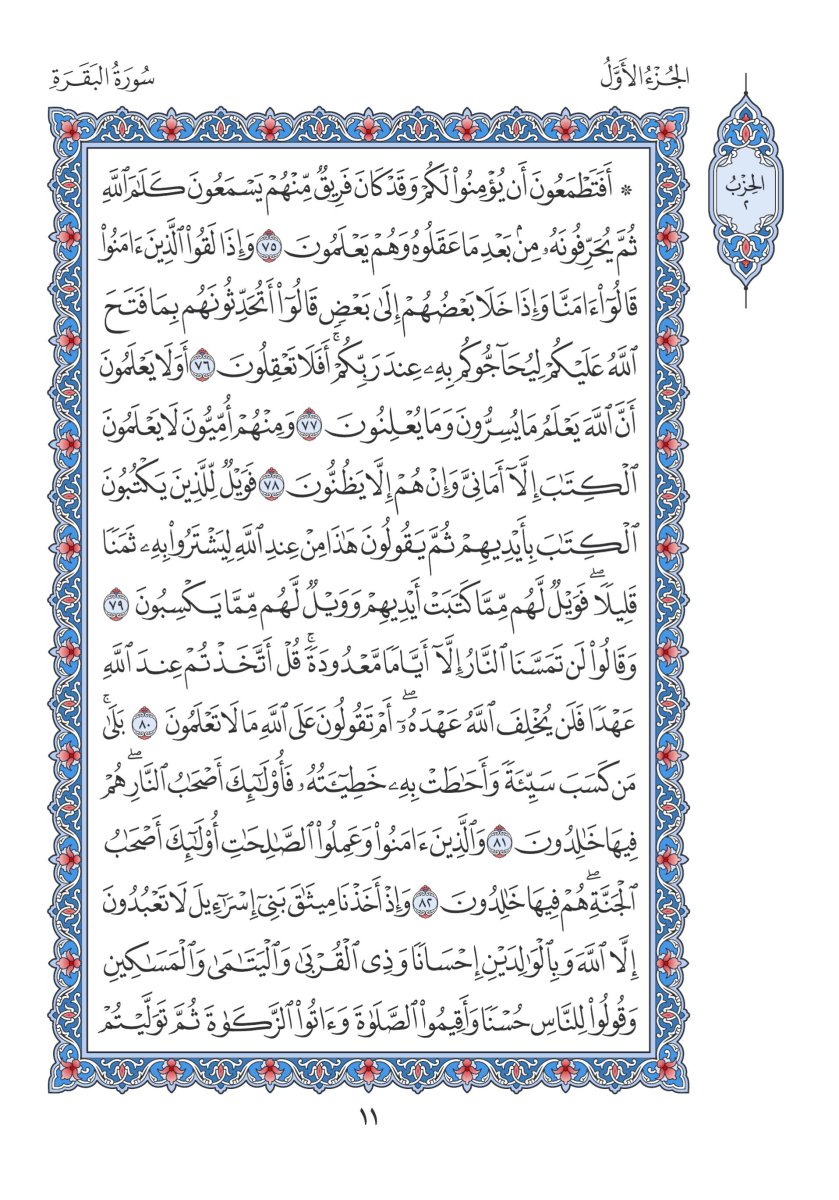 الجُزْءُ الأَوَّلُ
سُورَةُ البَقَرَةِ
الحِزْبُ
٢
۞ أَفَتَطْمَعُونَ أَن يُؤْمِنُوا۟ لَكُمْ وَقَدْ كَانَ فَرِيقٌ مِّنْهُمْ يَسْمَعُونَ كَلَٰمَ ٱللَّهِ
ثُمَّ يُحَرِّفُونَهُۥ مِنۢ بَعْدِ مَا عَقَلُوهُ وَهُمْ يَعْلَمُونَ ٧٥ وَإِذَا لَقُوا۟ ٱلَّذِينَ ءَامَنُوا۟
قَالُوٓا۟ ءَامَنَّا وَإِذَا خَلَا بَعْضُهُمْ إِلَىٰ بَعْضٍ قَالُوٓا۟ أَتُحَدِّثُونَهُم بِمَا فَتَحَ
ٱللَّهُ عَلَيْكُمْ لِيُحَآجُّوكُم بِهِۦ عِندَ رَبِّكُمْ ۚ أَفَلَا تَعْقِلُونَ ٧٦ أَوَلَا يَعْلَمُونَ
أَنَّ ٱللَّهَ يَعْلَمُ مَا يُسِرُّونَ وَمَا يُعْلِنُونَ ٧٧ وَمِنْهُمْ أُمِّيُّونَ لَا يَعْلَمُونَ
ٱلْكِتَٰبَ إِلَّآ أَمَانِىَّ وَإِنْ هُمْ إِلَّا يَظُنُّونَ ٧٨ فَوَيْلٌ لِّلَّذِينَ يَكْتُبُونَ
ٱلْكِتَٰبَ بِأَيْدِيهِمْ ثُمَّ يَقُولُونَ هَٰذَا مِنْ عِندِ ٱللَّهِ لِيَشْتَرُوا۟ بِهِۦ ثَمَنًا
قَلِيلًا ۖ فَوَيْلٌ لَّهُم مِّمَّا كَتَبَتْ أَيْدِيهِمْ وَوَيْلٌ لَّهُم مِّمَّا يَكْسِبُونَ ٧٩
وَقَالُوا۟ لَن تَمَسَّنَا ٱلنَّارُ إِلَّآ أَيَّامًا مَّعْدُودَةً ۚ قُلْ أَتَّخَذْتُمْ عِندَ ٱللَّهِ
عَهْدًا فَلَن يُخْلِفَ ٱللَّهُ عَهْدَهُۥٓ ۖ أَمْ تَقُولُونَ عَلَى ٱللَّهِ مَا لَا تَعْلَمُونَ ٨٠ بَلَىٰ ۚ
مَن كَسَبَ سَيِّئَةً وَأَحَٰطَتْ بِهِۦ خَطِيٓـَٔتُهُۥ فَأُو۟لَٰٓئِكَ أَصْحَٰبُ ٱلنَّارِ ۖ هُمْ
فِيهَا خَٰلِدُونَ ٨١ وَٱلَّذِينَ ءَامَنُوا۟ وَعَمِلُوا۟ ٱلصَّٰلِحَٰتِ أُو۟لَٰٓئِكَ أَصْحَٰبُ
ٱلْجَنَّةِ ۖ هُمْ فِيهَا خَٰلِدُونَ ٨٢ وَإِذْ أَخَذْنَا مِيثَٰقَ بَنِىٓ إِسْرَٰٓءِيلَ لَا تَعْبُدُونَ
إِلَّا ٱللَّهَ وَبِٱلْوَٰلِدَيْنِ إِحْسَانًا وَذِى ٱلْقُرْبَىٰ وَٱلْيَتَٰمَىٰ وَٱلْمَسَٰكِينِ
وَقُولُوا۟ لِلنَّاسِ حُسْنًا وَأَقِيمُوا۟ ٱلصَّلَوٰةَ وَءَاتُوا۟ ٱلزَّكَوٰةَ ثُمَّ تَوَلَّيْتُمْ
١١